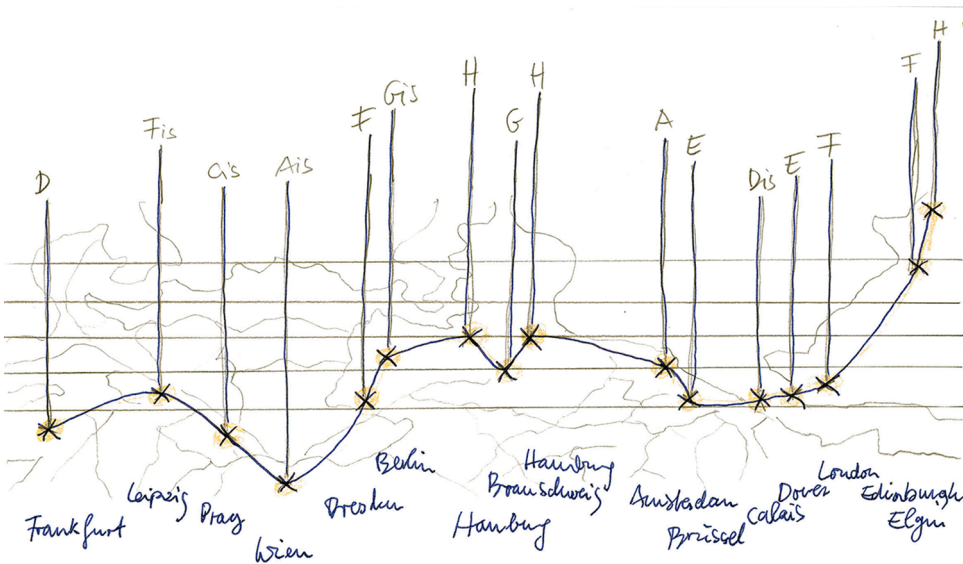 D
Fis
Cis
Ais
F
Gis
H
G
H
A
E
Dis
E
F
F
H
Frankfurt
Leipzig
Prag
Wien
Dresden
Berlin
Hamburg
Braunschweig
Hamburg
Amsterdam
Brüssel
Calais
Dover
London
Edinburgh
Elgin